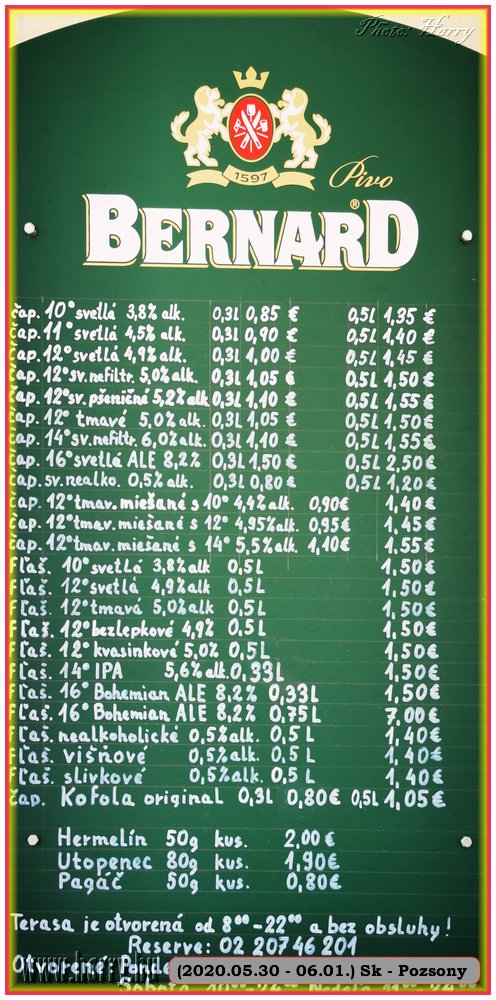 Photo: Harry
1597
Pivo
BERNARD®
čap. 10° svetlá 3,8% alk. 0,3L 0,85 € 0,5L 1,35 €
čap. 11° svetlá 4,5% alk. 0,3L 0,90 € 0,5L 1,40 €
čap. 12° svetlá 4,9% alk. 0,3L 1,00 € 0,5L 1,45 €
čap. 12° sv. nefiltr. 5,0% alk. 0,3L 1,05 € 0,5L 1,50 €
čap. 12° sv. pšeničné 5,2% alk. 0,3L 1,10 € 0,5L 1,55 €
čap. 12° tmavé 5,0% alk. 0,3L 1,05 € 0,5L 1,50 €
čap. 14° sv. nefiltr. 6,0% alk. 0,3L 1,10 € 0,5L 1,55 €
čap. 16° svetlá ALE 8,2% 0,3L 1,50 € 0,5L 2,50 €
čap. sv. nealko. 0,5% alk. 0,3L 0,80 € 0,5L 1,20 €
čap. 12° tmav. miešané s 10° 4,4% alk. 0,90€ 1,40 €
čap. 12° tmav. miešané s 12° 4,95% alk. 0,95€ 1,45 €
čap. 12° tmav. miešané s 14° 5,5% alk. 1,10€ 1.55 €
Fľaš. 10° svetlá 3,8% alk 0,5L 1,50 €
Fľaš. 12° svetlá 4,9% alk 0,5L 1,50 €
Fľaš. 12° tmavá 5,0% alk 0,5L 1,50 €
Fľaš. 12° bezlepkové 4,9% 0,5L 1,50 €
Fľaš. 12° kvasinkové 5,0% 0,5L 1,50 €
Fľaš. 14° IPA 5,6% alk. 0,33L 1,50 €
Fľaš. 16° Bohemian ALE 8,2% 0,33L 1,50 €
Fľaš. 16° Bohemian ALE 8,2% 0,75L 7,00 €
Fľaš. nealkoholické 0,5% alk. 0,5L 1,40 €
Fľaš. višňové 0,5% alk. 0,5L 1,40 €
Fľaš. slivkové 0,5% alk. 0,5L 1,40 €
čap. Kofola original 0,3L 0,80€ 0,5L 1,05 €
Hermelín 50g kus. 2,00 €
Utopenec 80g kus. 1,90€
Pagáč 50g kus. 0,80€
Terasa je otvorená od 8⁰⁰-22⁰⁰ a bez obsluhy!
Reserve: 02 207 46 201
Otvorené:
(2020.05.30 - 06.01.) Sk - Pozsony